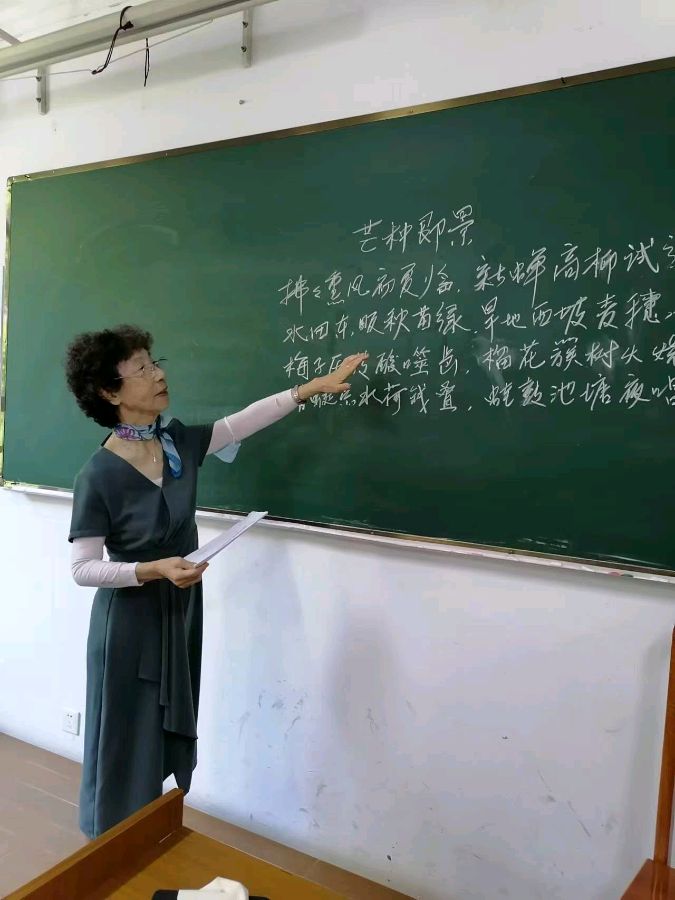 芒种即景
拂々熏风初夏临，新蝉高柳试
水田东畈秧苗绿，旱地西坡麦穗
梅子 酸噬齿，榴花簇树火
点水荷钱叠，蛙鼓池塘夜唱